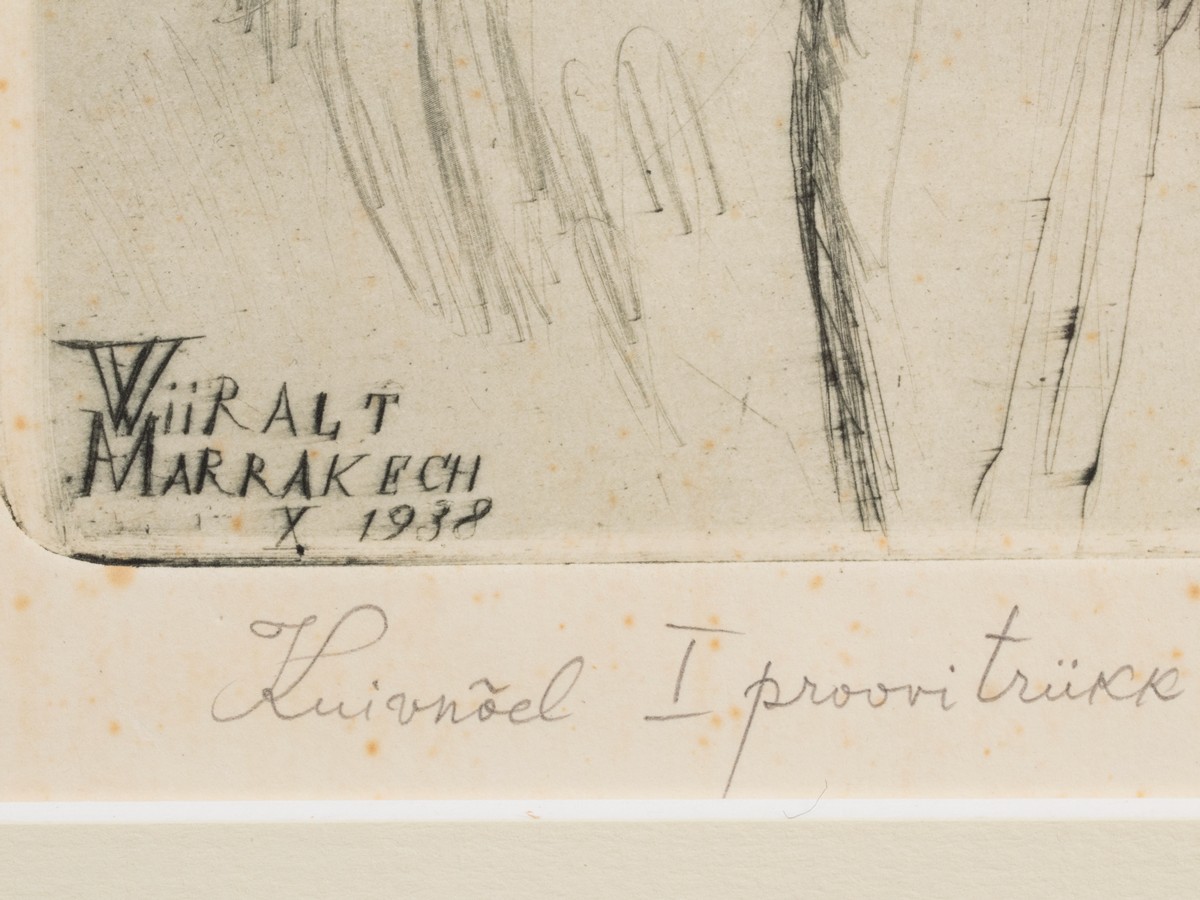 WiiRALT
MARRAKECH
X 1938
Kuivnõel I proovitrükk